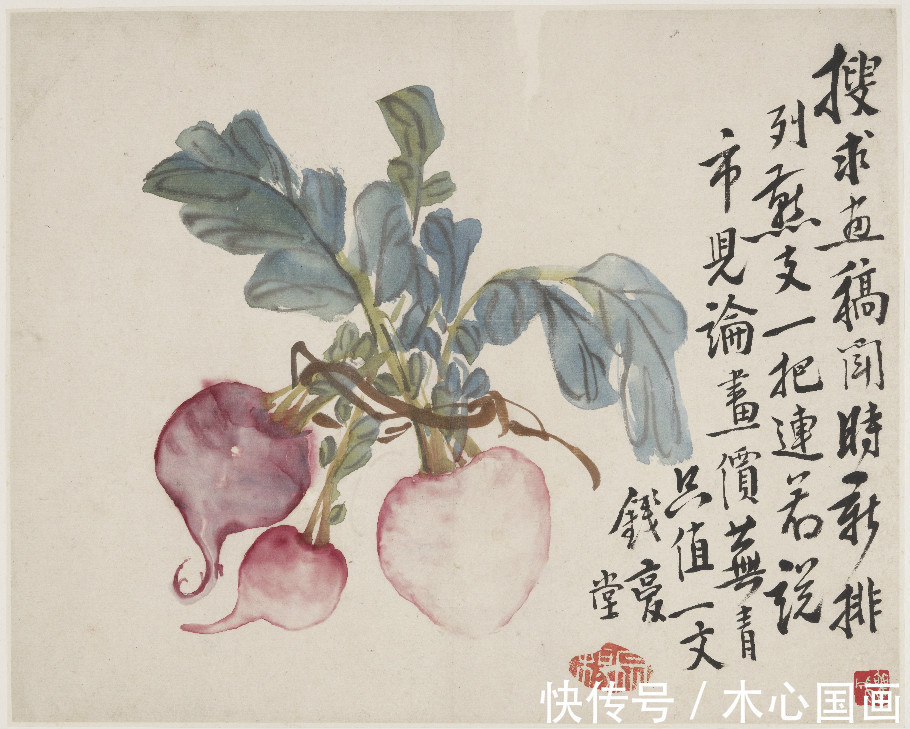 搜求画稿時新排
列燕支一把連若說
市見論畫價蕪青
只值一文
錢复
堂
快传号 / 木心国画